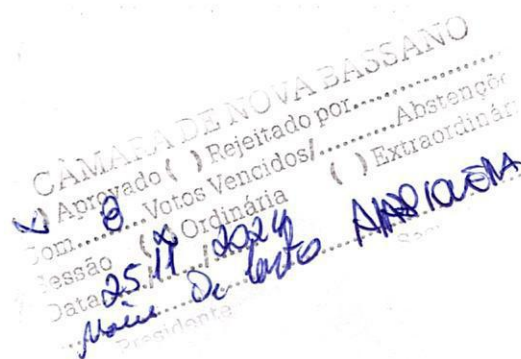 CÂMARA DE NOVA BASSANO
(X) Aprovado ( ) Rejeitado por..................
Com.....8....Votos Vencidos/..........Abstençõe
Sessão (X) Ordinária ( ) Extraordinár
Data 25/11/2024
Presidente